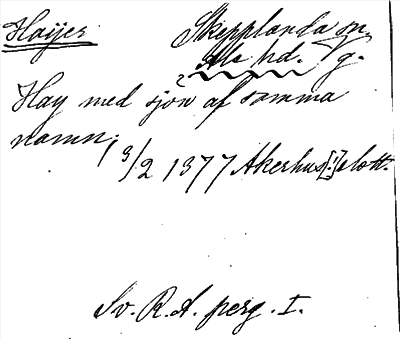 Haijer Skepplanda sn.
Ale hd. g.
Hay med sjön af samma
namn,
3/2 1377 Akerhus[!]slott.
Sv. R. A. perg. I.